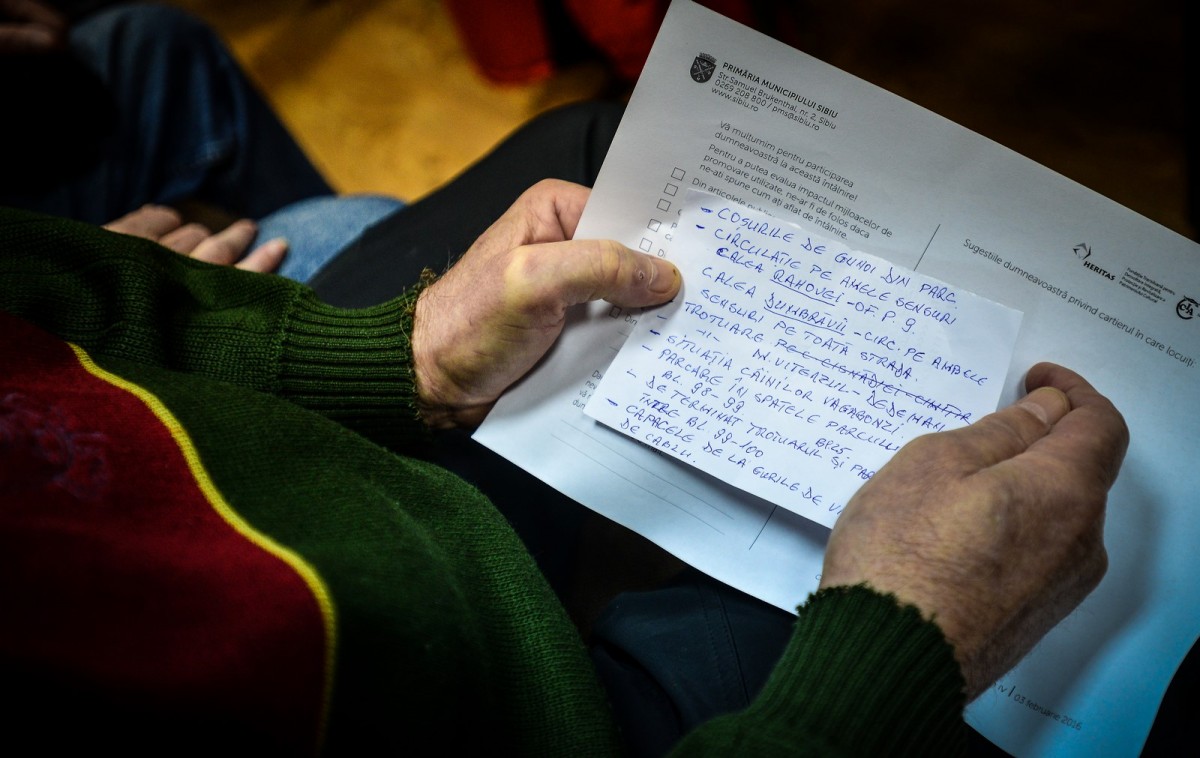 PRIMĂRIA MUNICIPIULUI SIBIU
Str. Samuel Brukenthal, nr. 2, Sibiu
0269 208 800 / pms@sibiu.ro
www.sibiu.ro
Vă mulțumim pentru participarea
dumneavoastră la această întâlnire!
Pentru a putea evalua impactul mijloacelor de
promovare utilizate, ne-ar fi de folos daca
ne-ati spune cum ați aflat de întâlnire.
Din articolele
Sugestiile dumneavoastră privind cartierul în care locuiți
HERITAS
- COȘURILE DE GUNOI DIN PARC
- CIRCULATIE PE AMELE SENSURI
CALEA RAHOVEI - OF. P. 9
CALEA DUMBRAVII - CIRC. PE AMBELE
SENSURI PE TOATĂ STRADA.
- TROTUARE
- -11- N. VITEAZUL - DEDEMAN
- SITUAȚIA CÂINILOR VAGABONZI
- PARCARE ÎN SPATELE PARCULUI
BL. 98-99
- DE TERMINAT TROTUARUL ȘI
ÎNTRE BL 99-100
- CAPACELE DE LA GURILE DE
DE CABLU.
03 februarie 2016